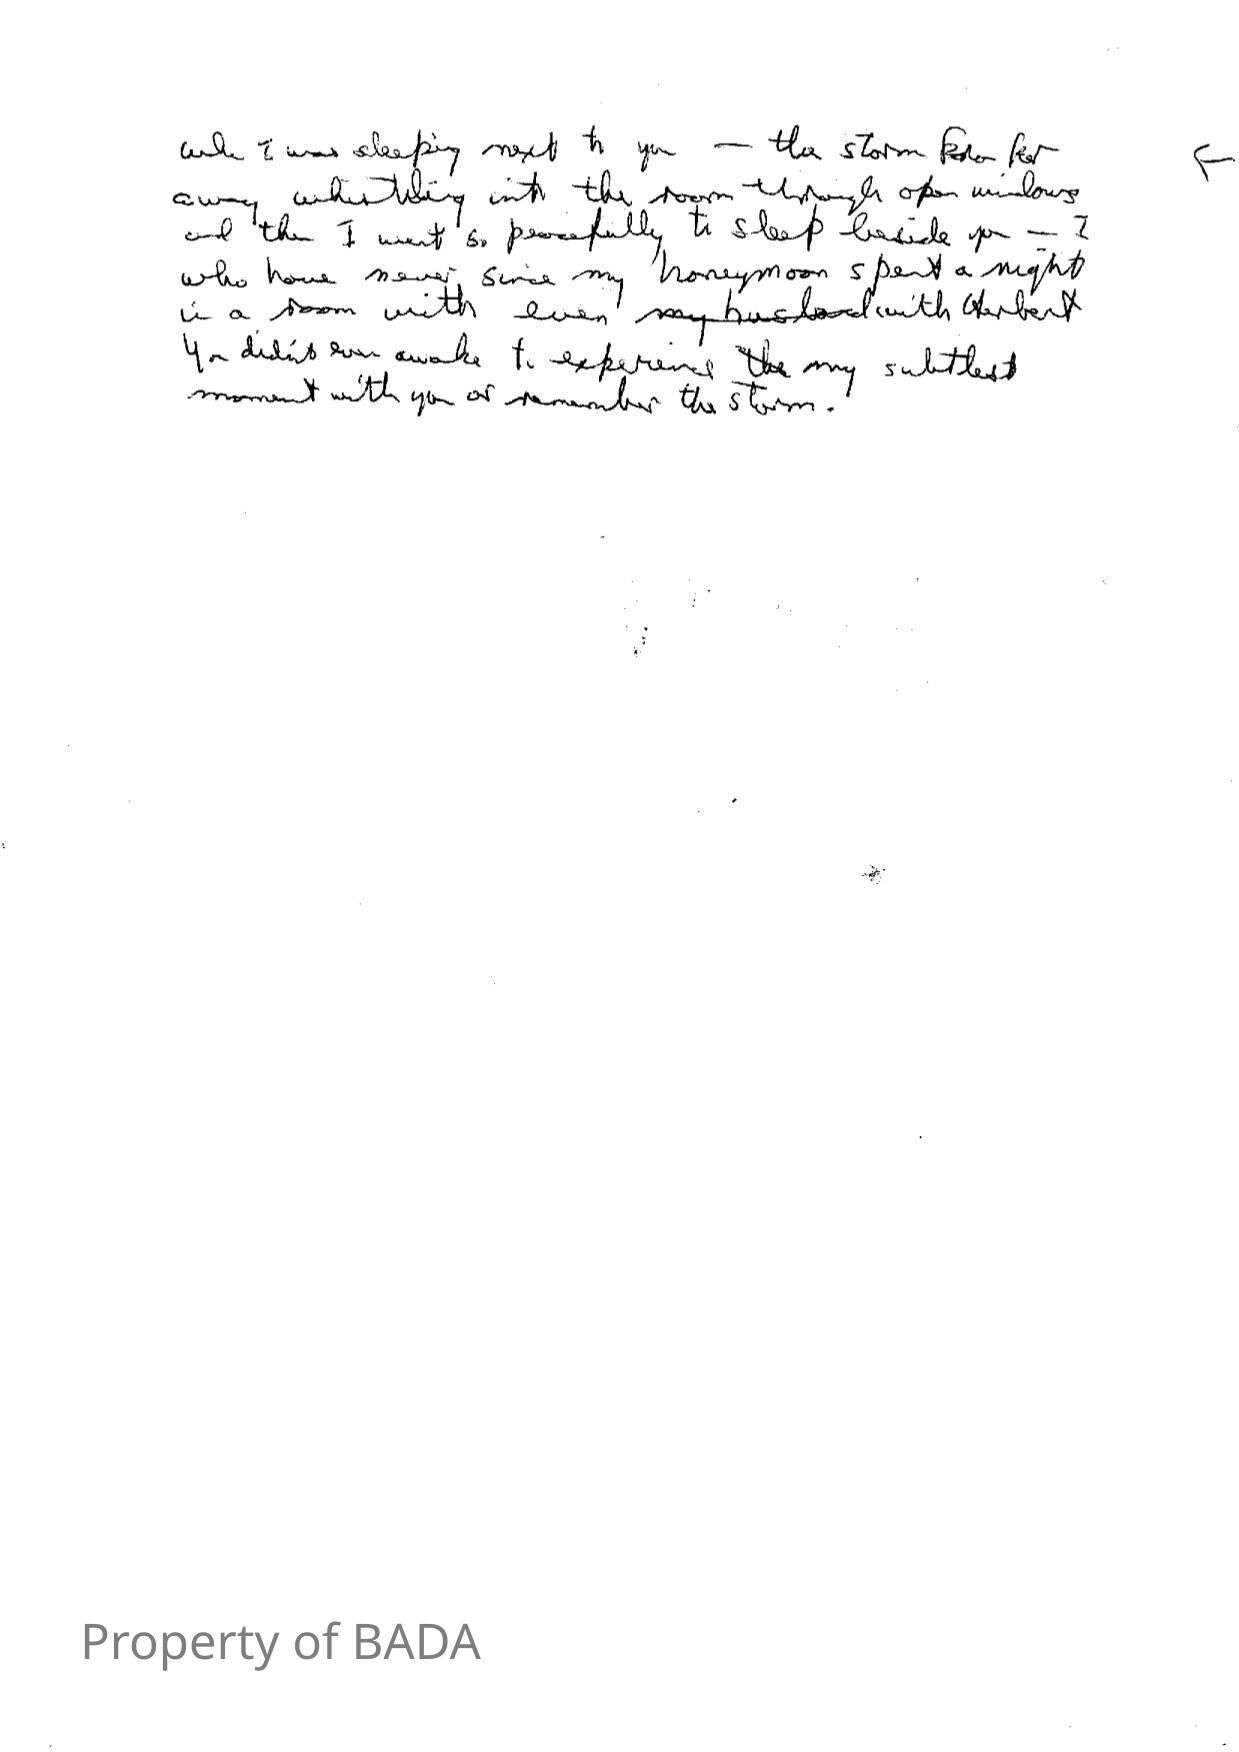 and I was sleeping next to you — the storm far
away whistling into the room through open windows
and then I went so peacefully to sleep beside you — I
who have never since my honeymoon spent a night
in a room with even my husband with Herbert
You didn't even awake to experience the my subtlest
moment with you or remember the storm.
Property of BADA